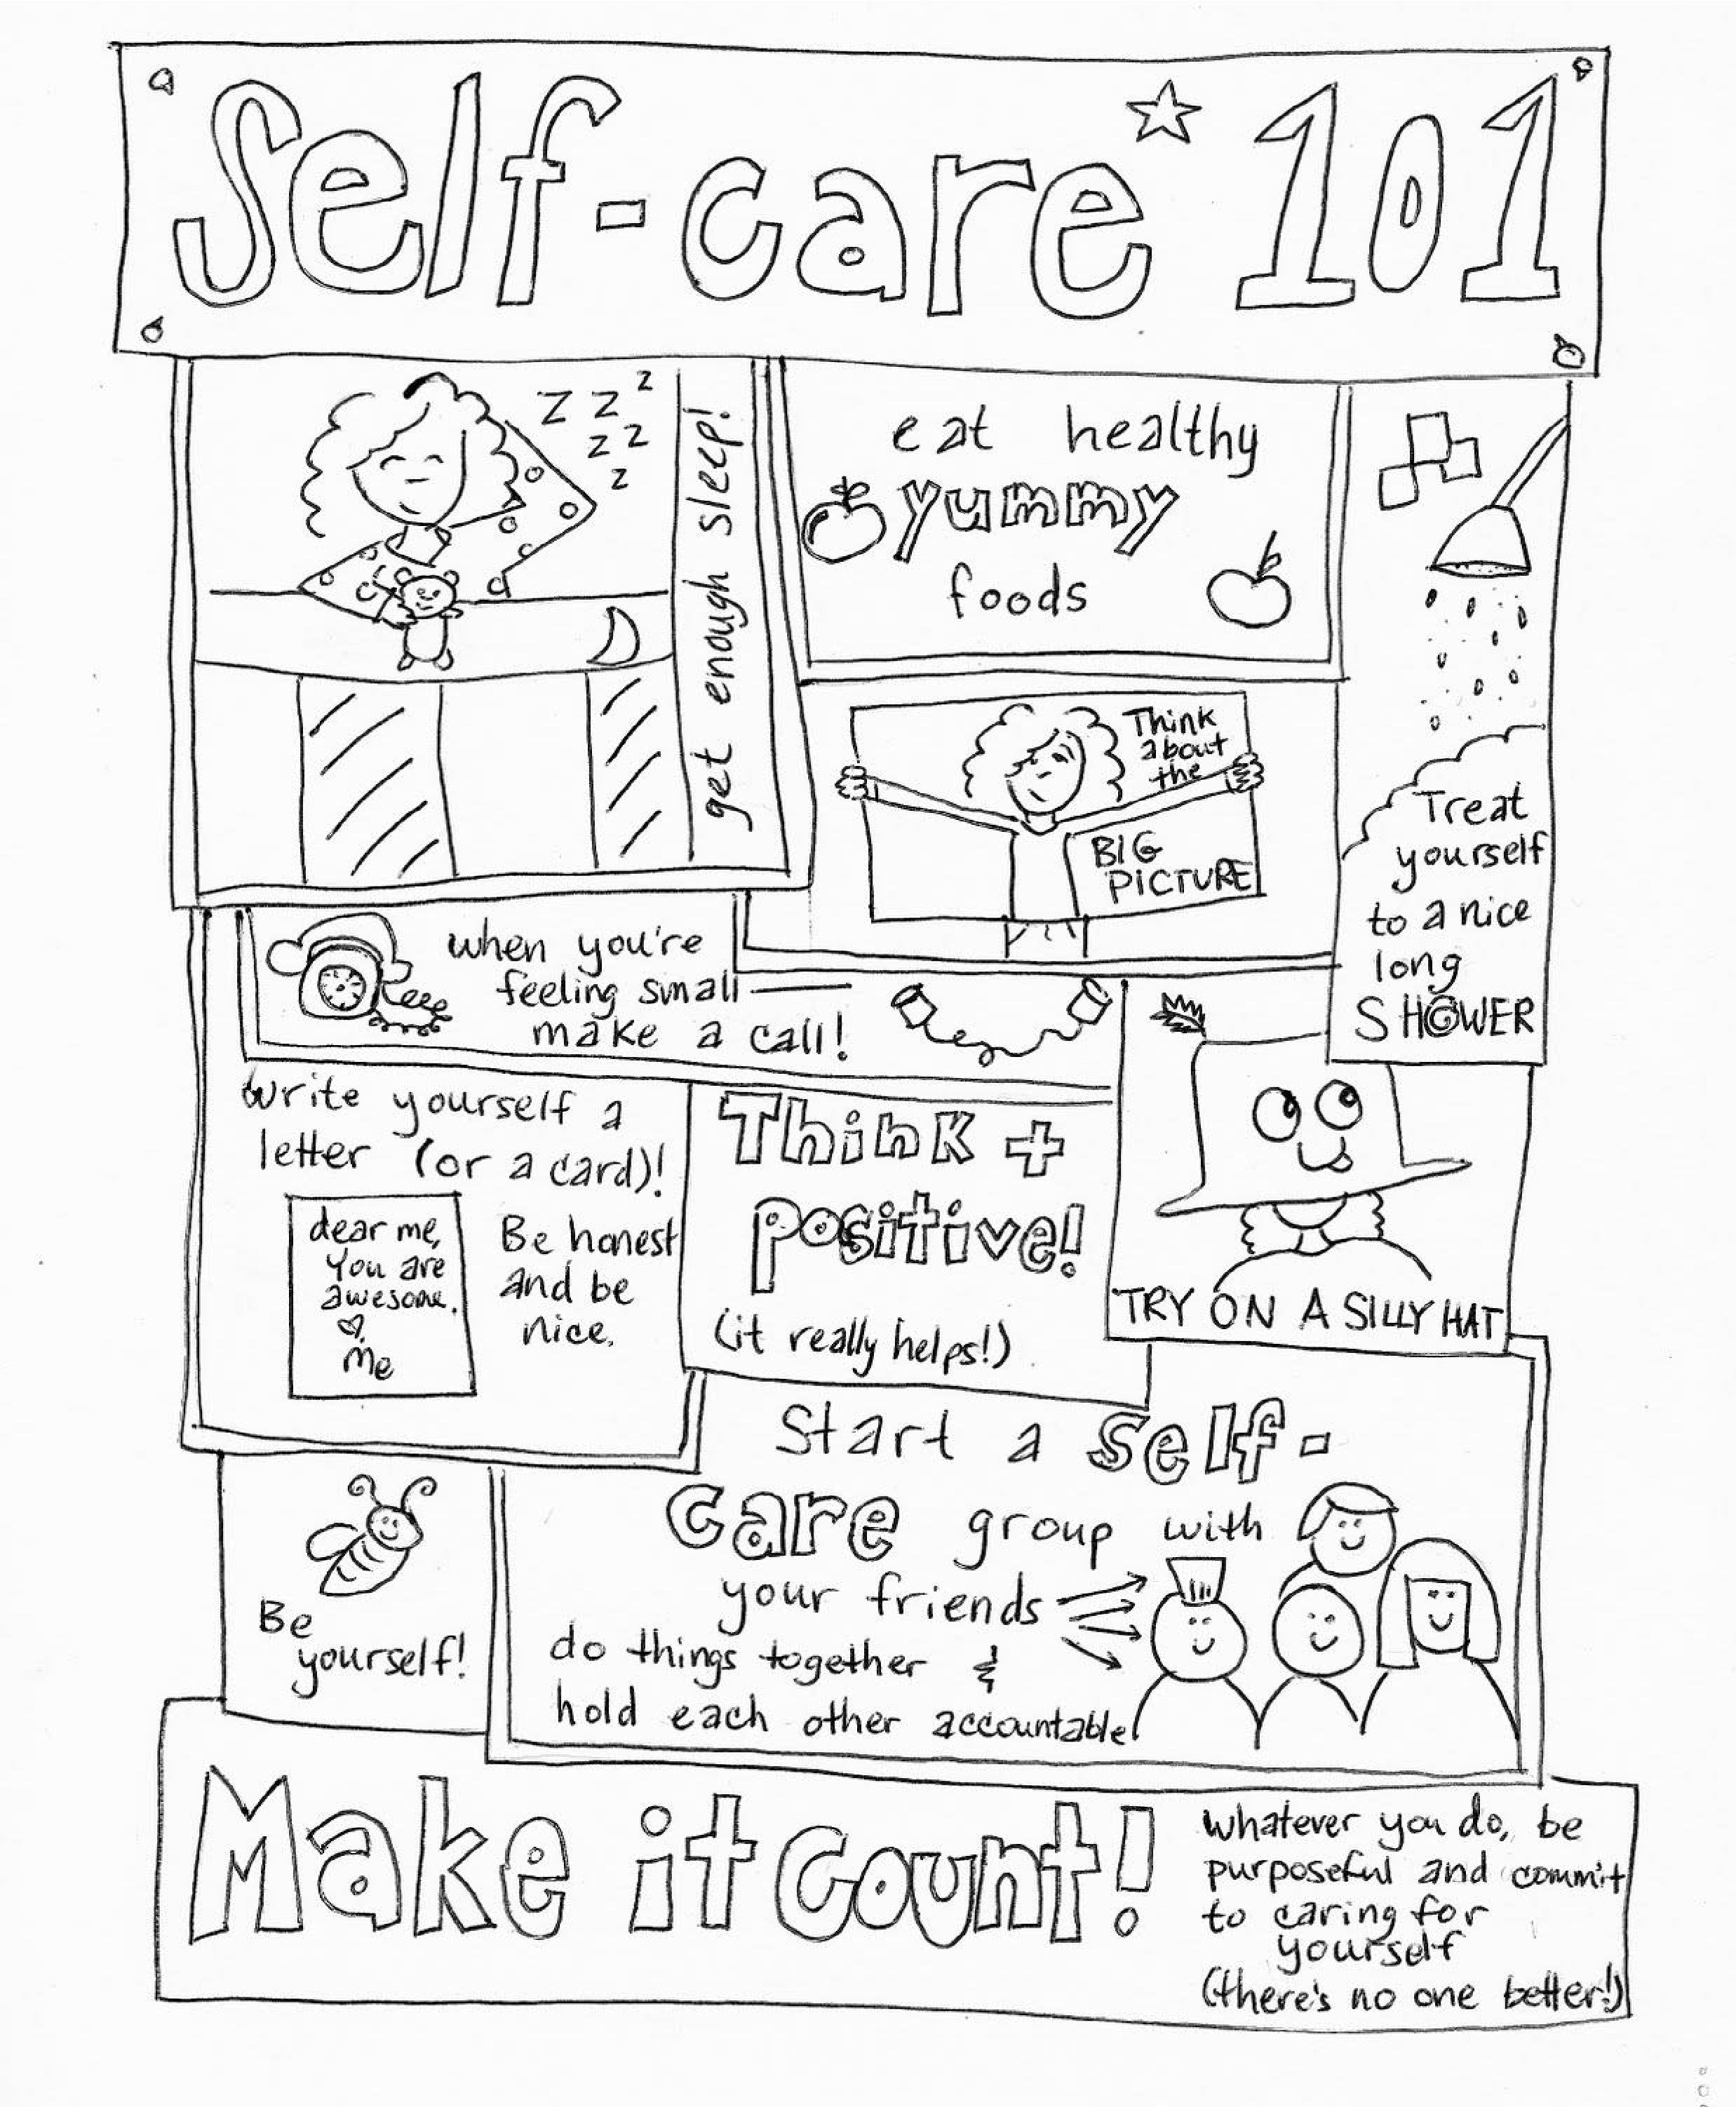 Self-care 101
z z z
z z
z
get enough sleep!
eat healthy
yummy
foods
Think
about
the
BIG
PICTURE
Treat
yourself
to a nice
long
SHOWER
when you're
feeling small
make a call!
write yourself a
letter (or a card)!
dear me,
You are
awesome.
me
Be honest
and be
nice.
Think +
positive!
(it really helps!)
TRY ON A SILLY HAT
Start a self-
care group with
your friends
do things together &
hold each other accountable
Be
yourself!
Make it count!
whatever you do, be
purposeful and commit
to caring for
yourself
(there's no one better!)